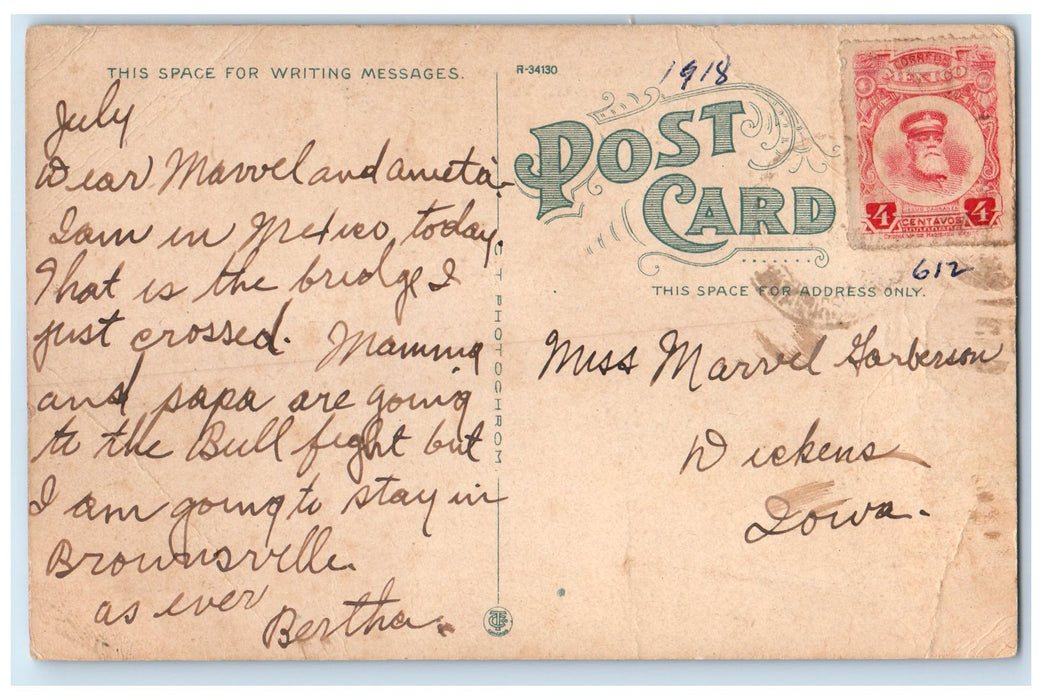 THIS SPACE FOR WRITING MESSAGES.
July
Dear Marvel and ameta-
I am in Mexico today.
That is the bridge I
just crossed. Mamma
and papa are going
to the Bull fight but
I am going to stay in
Brownsville.
as ever
Bertha.
CT PHOTOCHROM
R-34130
1918
POST CARD
CORREOS
MEXICO
4 CENTAVOS 4
612
THIS SPACE FOR ADDRESS ONLY.
Miss Marvel Garberson
Dickens
Iowa.